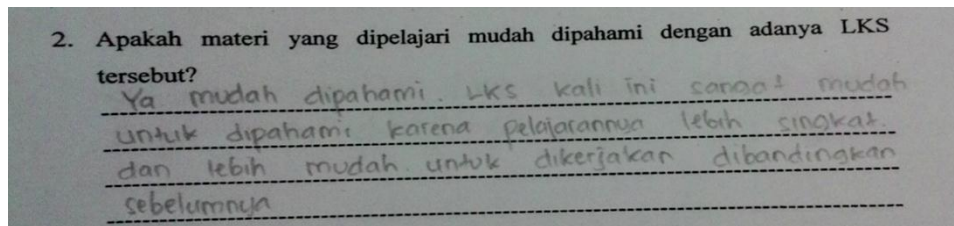 2. Apakah materi yang dipelajari mudah dipahami dengan adanya LKS
tersebut?
Ya mudah dipahami. LKS kali ini sangat mudah
untuk dipahami karena pelajarannya lebih singkat.
dan lebih mudah untuk dikerjakan dibandingkan
sebelumnya